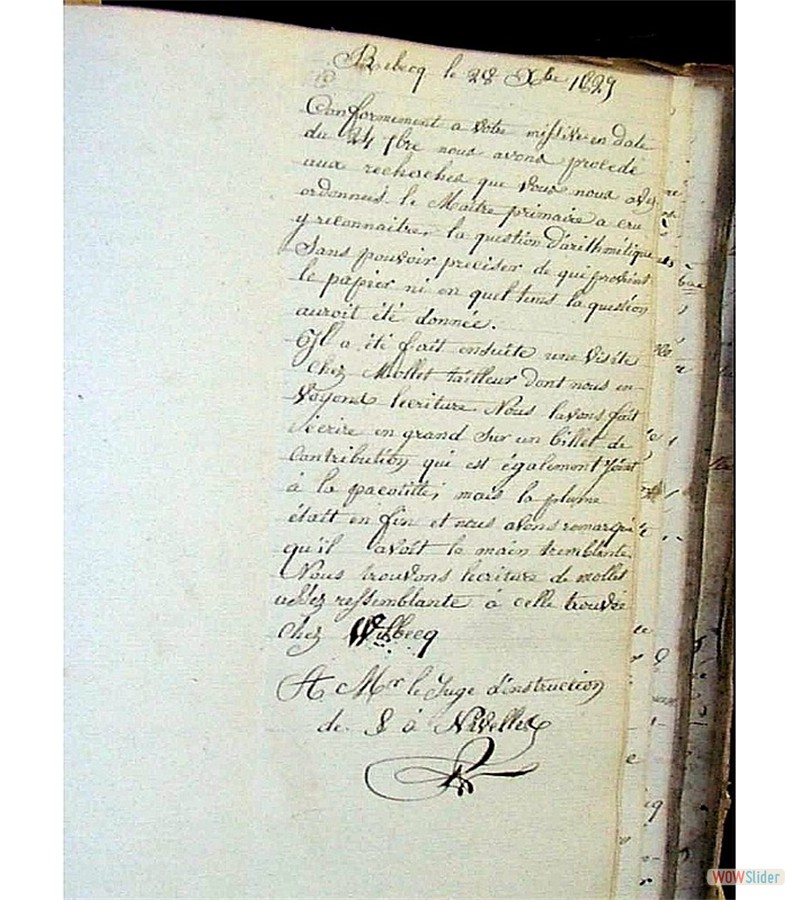 Rebecq le 28 Xbre 1829
Conformement a votre missive en date
du 24 Xbre nous avons procedé
aux recherches que vous nous avez
ordonneés le Maître primaire a cru
y reconnaitre, la question d'arithmétique
Sans pouvoir preciser de qui provint
le papier ni en quel tems la question
auroit été donnée.
Il a été fait ensuite une visite
Chez Mollet tailleur dont nous en-
voyons lecriture. Nous lavons fait
écrire en grand sur un billet de
Contribution qui est également joint
à la pacotille; mais la plume
étatt en fin et nous avons remarqué
qu'il avoit la main tremblante.
Nous trouvons lecriture de mollet
assez ressemblante à celle trouvée
chez Wisbecq
A Mr le Juge d'instruction
de & à Nivelles
WOWSlider